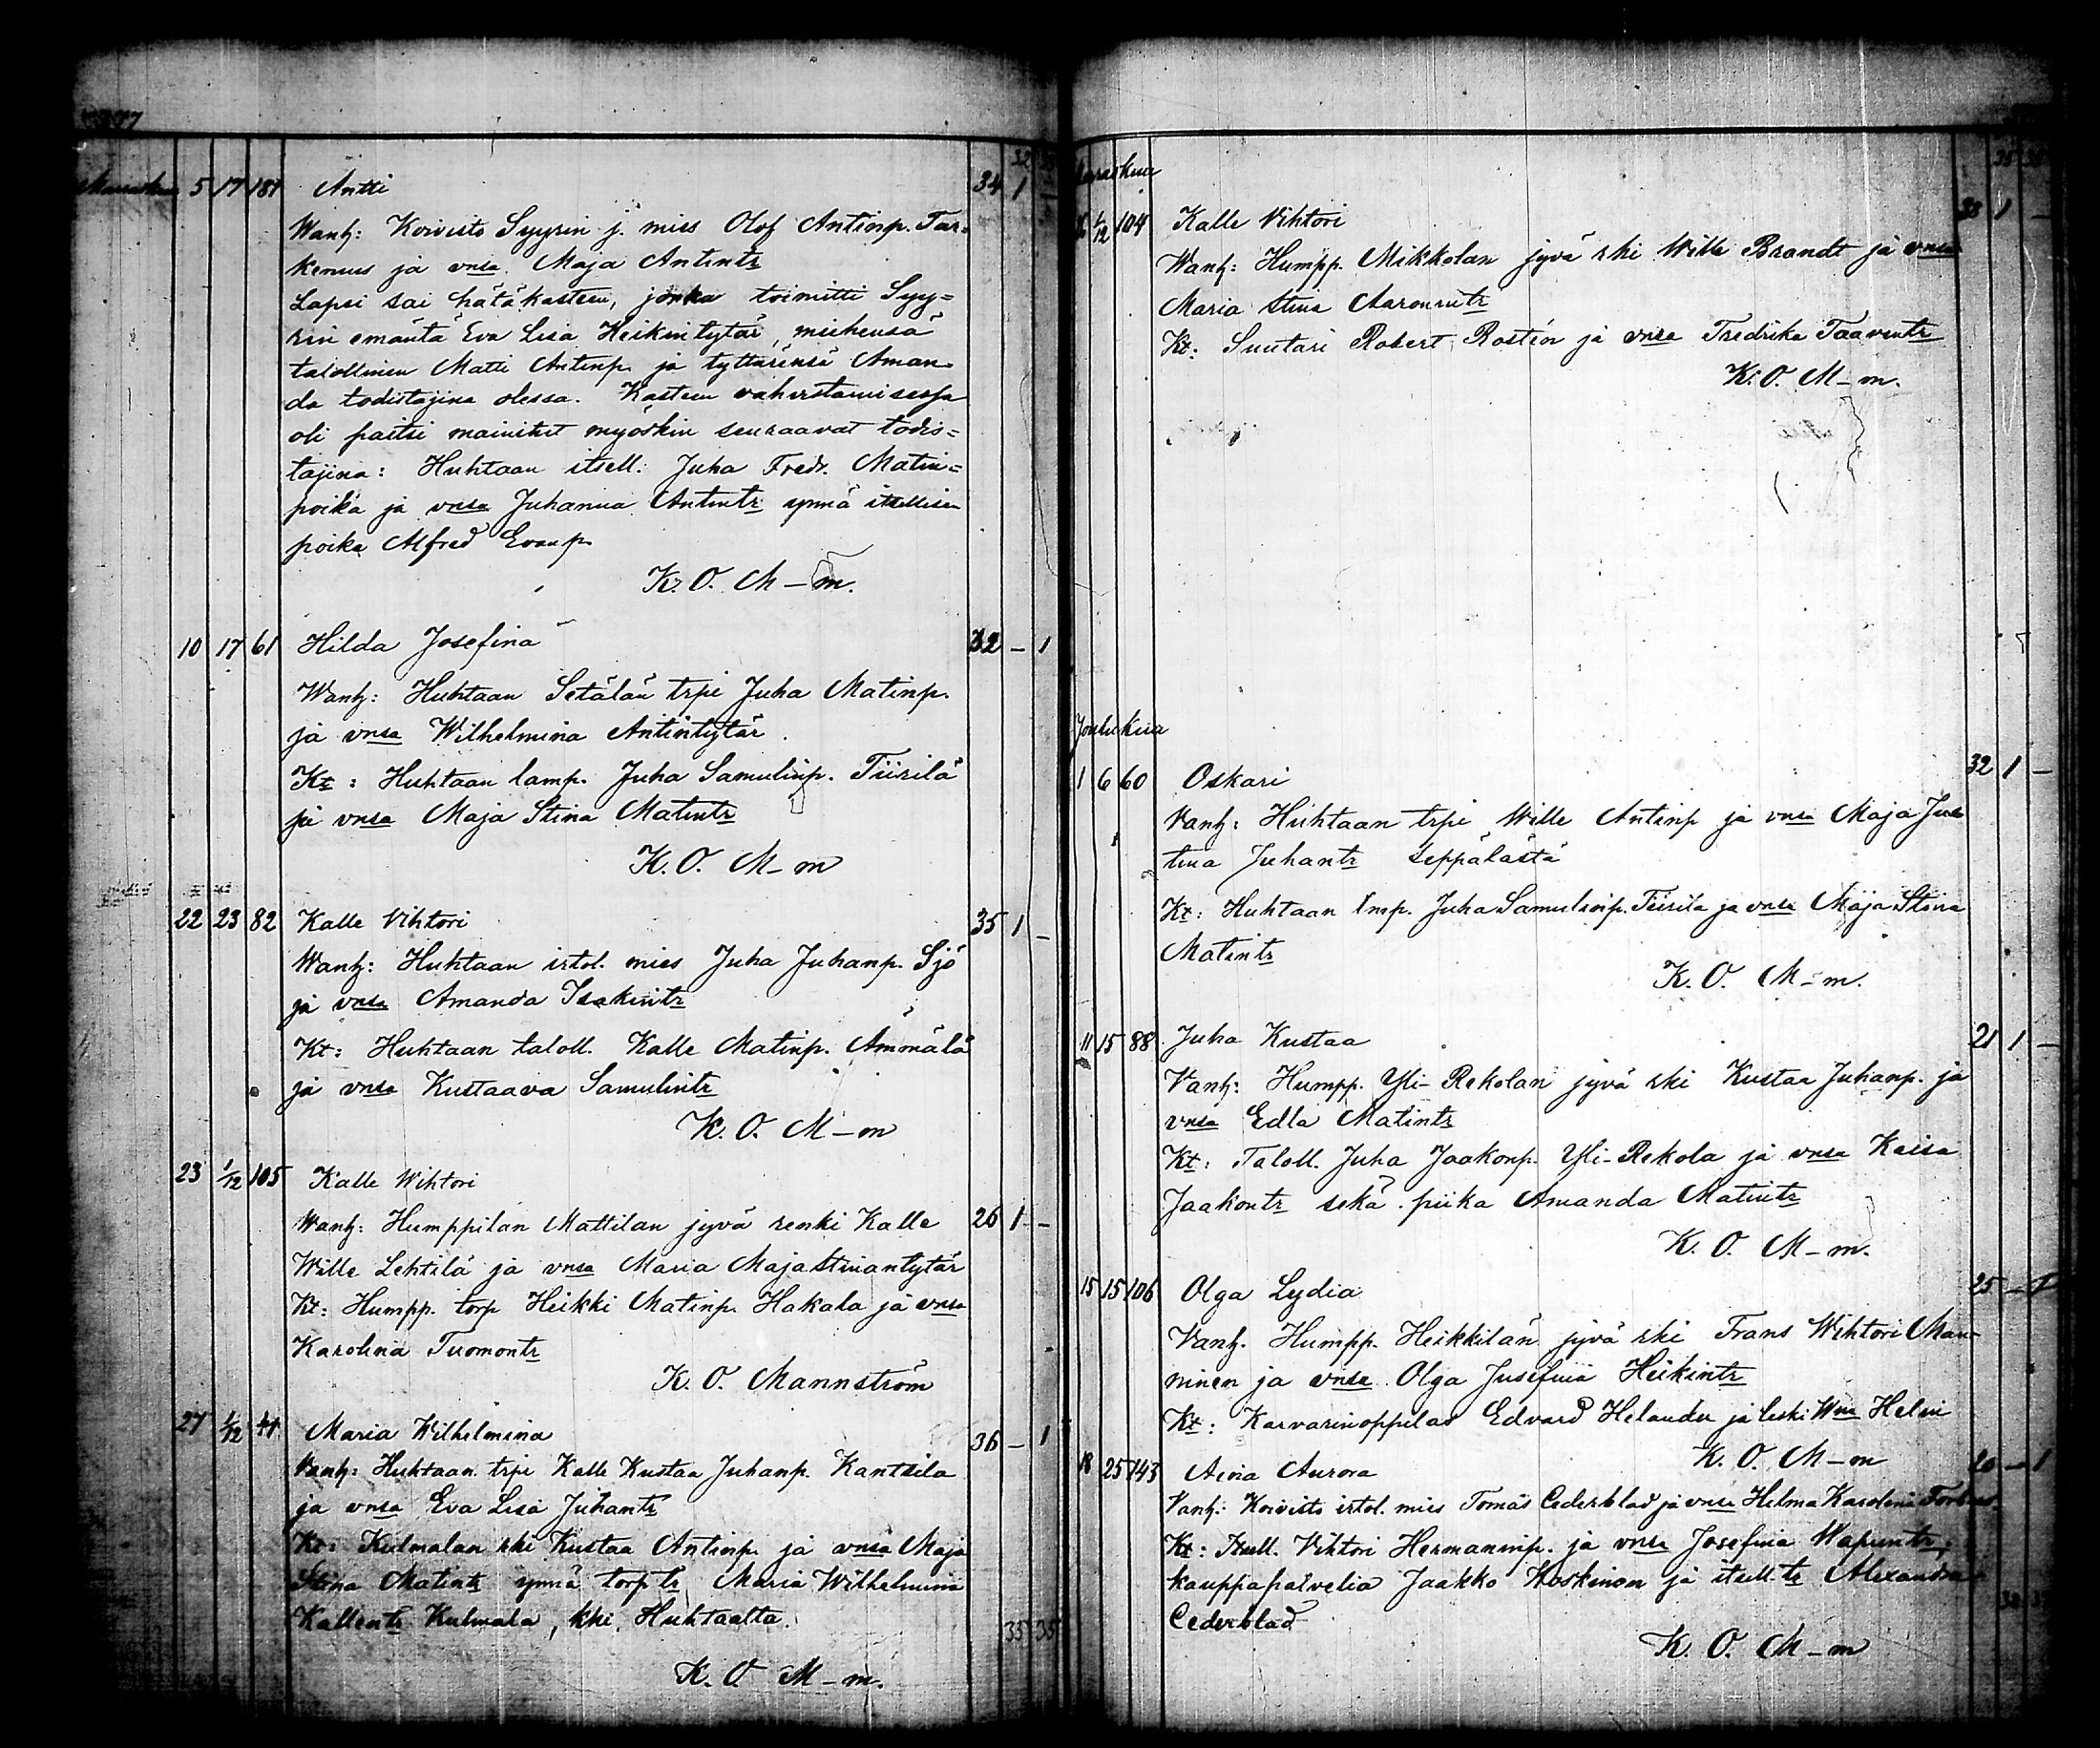 5 17 181 Antti 34 1
Wanh: Koivisto Syyrin j. mies Olof Antinp. Tar-
kenius ja vnsa Maja Antintr
Lapsi sai hätäkasteen, jonka toimitti Syy=
rin emäntä Eva Lisa Heikintytär, miehensä
talollinen Matti Antinp. ja tyttärensä Aman-
da todistajina olessa. Kasteen vahvistamisessa
oli paitsi mainitut myöskin seuraavat todis=
tajina: Huhtaan itsell. Juha Fredr. Matin=
poika ja vnsa Juhanna Antintr ynnä itsellisen
poika Alfred Evanp.
K. O. M–m.
10 17 61 Hilda Josefina 32 – 1
Wanh: Huhtaan Setälän trpi Juha Matinp.
ja vnsa Wilhelmina Antintytär.
Kt: Huhtaan lamp. Juha Samulinp. Tiirilä
ja vnsa Maja Stina Matintr
K. O. M–m
22 23 82 Kalle Vihtori 35 1 –
Wanh: Huhtaan irtol. mies Juha Juhanp. Sjö
ja vnsa Amanda Isakintr
Kt: Huhtaan taloll. Kalle Matinp. Ämmälä
ja vnsa Kustaava Samulintr
K. O. M–m
23 1/12 105 Kalle Wihtori
Wanh: Humppilan Mattilan jyvä renki Kalle 26 1 –
Wille Lehtilä ja vnsa Maria Majastinantytär
Kt: Humpp. torp Heikki Matinp. Hakala ja vnsa
Karolina Tuomontr
K. O. Mannström
27 1/12 Maria Wilhelmina 36 – 1
Vanh: Huhtaan trpi Kalle Kustaa Juhanp. Kantsila
ja vnsa Eva Lisa Juhantr
Kt: Kulmalan rki Kustaa Antinp. ja vnsa Maja
Stina Matintr ynnä torp tr Maria Wilhelmina
Kallentr Kulmala, kki. Huhtaalta.
35 35
K. O. M–m.
Marraskuu
1/12 104 Kalle Vihtori 33 1 –
Wanh: Humpp. Mikkolan jyvä rki Wille Brandt ja vnsa
Maria Stina Aaronintr
Kt: Suutari Robert Rostén ja vnsa Fredrika Taavintr
K. O. M–m.
Joulukuu
1 6 60 Oskari 32 1 –
Vanh: Huhtaan trpi Wille Antinp ja vnsa Maja Jus
tina Juhantr Seppälästä
Kt: Huhtaan lmp. Juha Samulinp. Tiirilä ja vnsa Maja Stina
Matintr
K. O. M–m.
11 15 88 Juha Kustaa 21 1 –
Vanh: Humpp. Yli-Rekolan jyvä rki Kustaa Juhanp. ja
vnsa Edla Matintr
Kt: Taloll. Juha Jaakonp. Yli-Rekola ja vnsa Kaisa
Jaakontr sekä piika Amanda Matintr
K. O. M–m.
15 15 106 Olga Lydia 25 – 1
Vanh. Humpp. Heikkilän jyvä rki Frans Wihtori Man-
ninen ja vnsa Olga Josefina Heikintr
Kt: Karvarinoppilas Edvard Helander ja leski Wna Helin
K. O. M–m
18 25 143 Aina Aurora 20 – 1
Vanh: Koivisto irtol. mies Tomás Cederblad ja vnsa Helma Karolina
Kt: Itsell. Vihtori Hermaninp. ja vnsa Josefina Wapuntr,
kauppapalvelia Jaakko Koskinen ja itsell. tr Alexandra
Cederblad
K. O. M–m